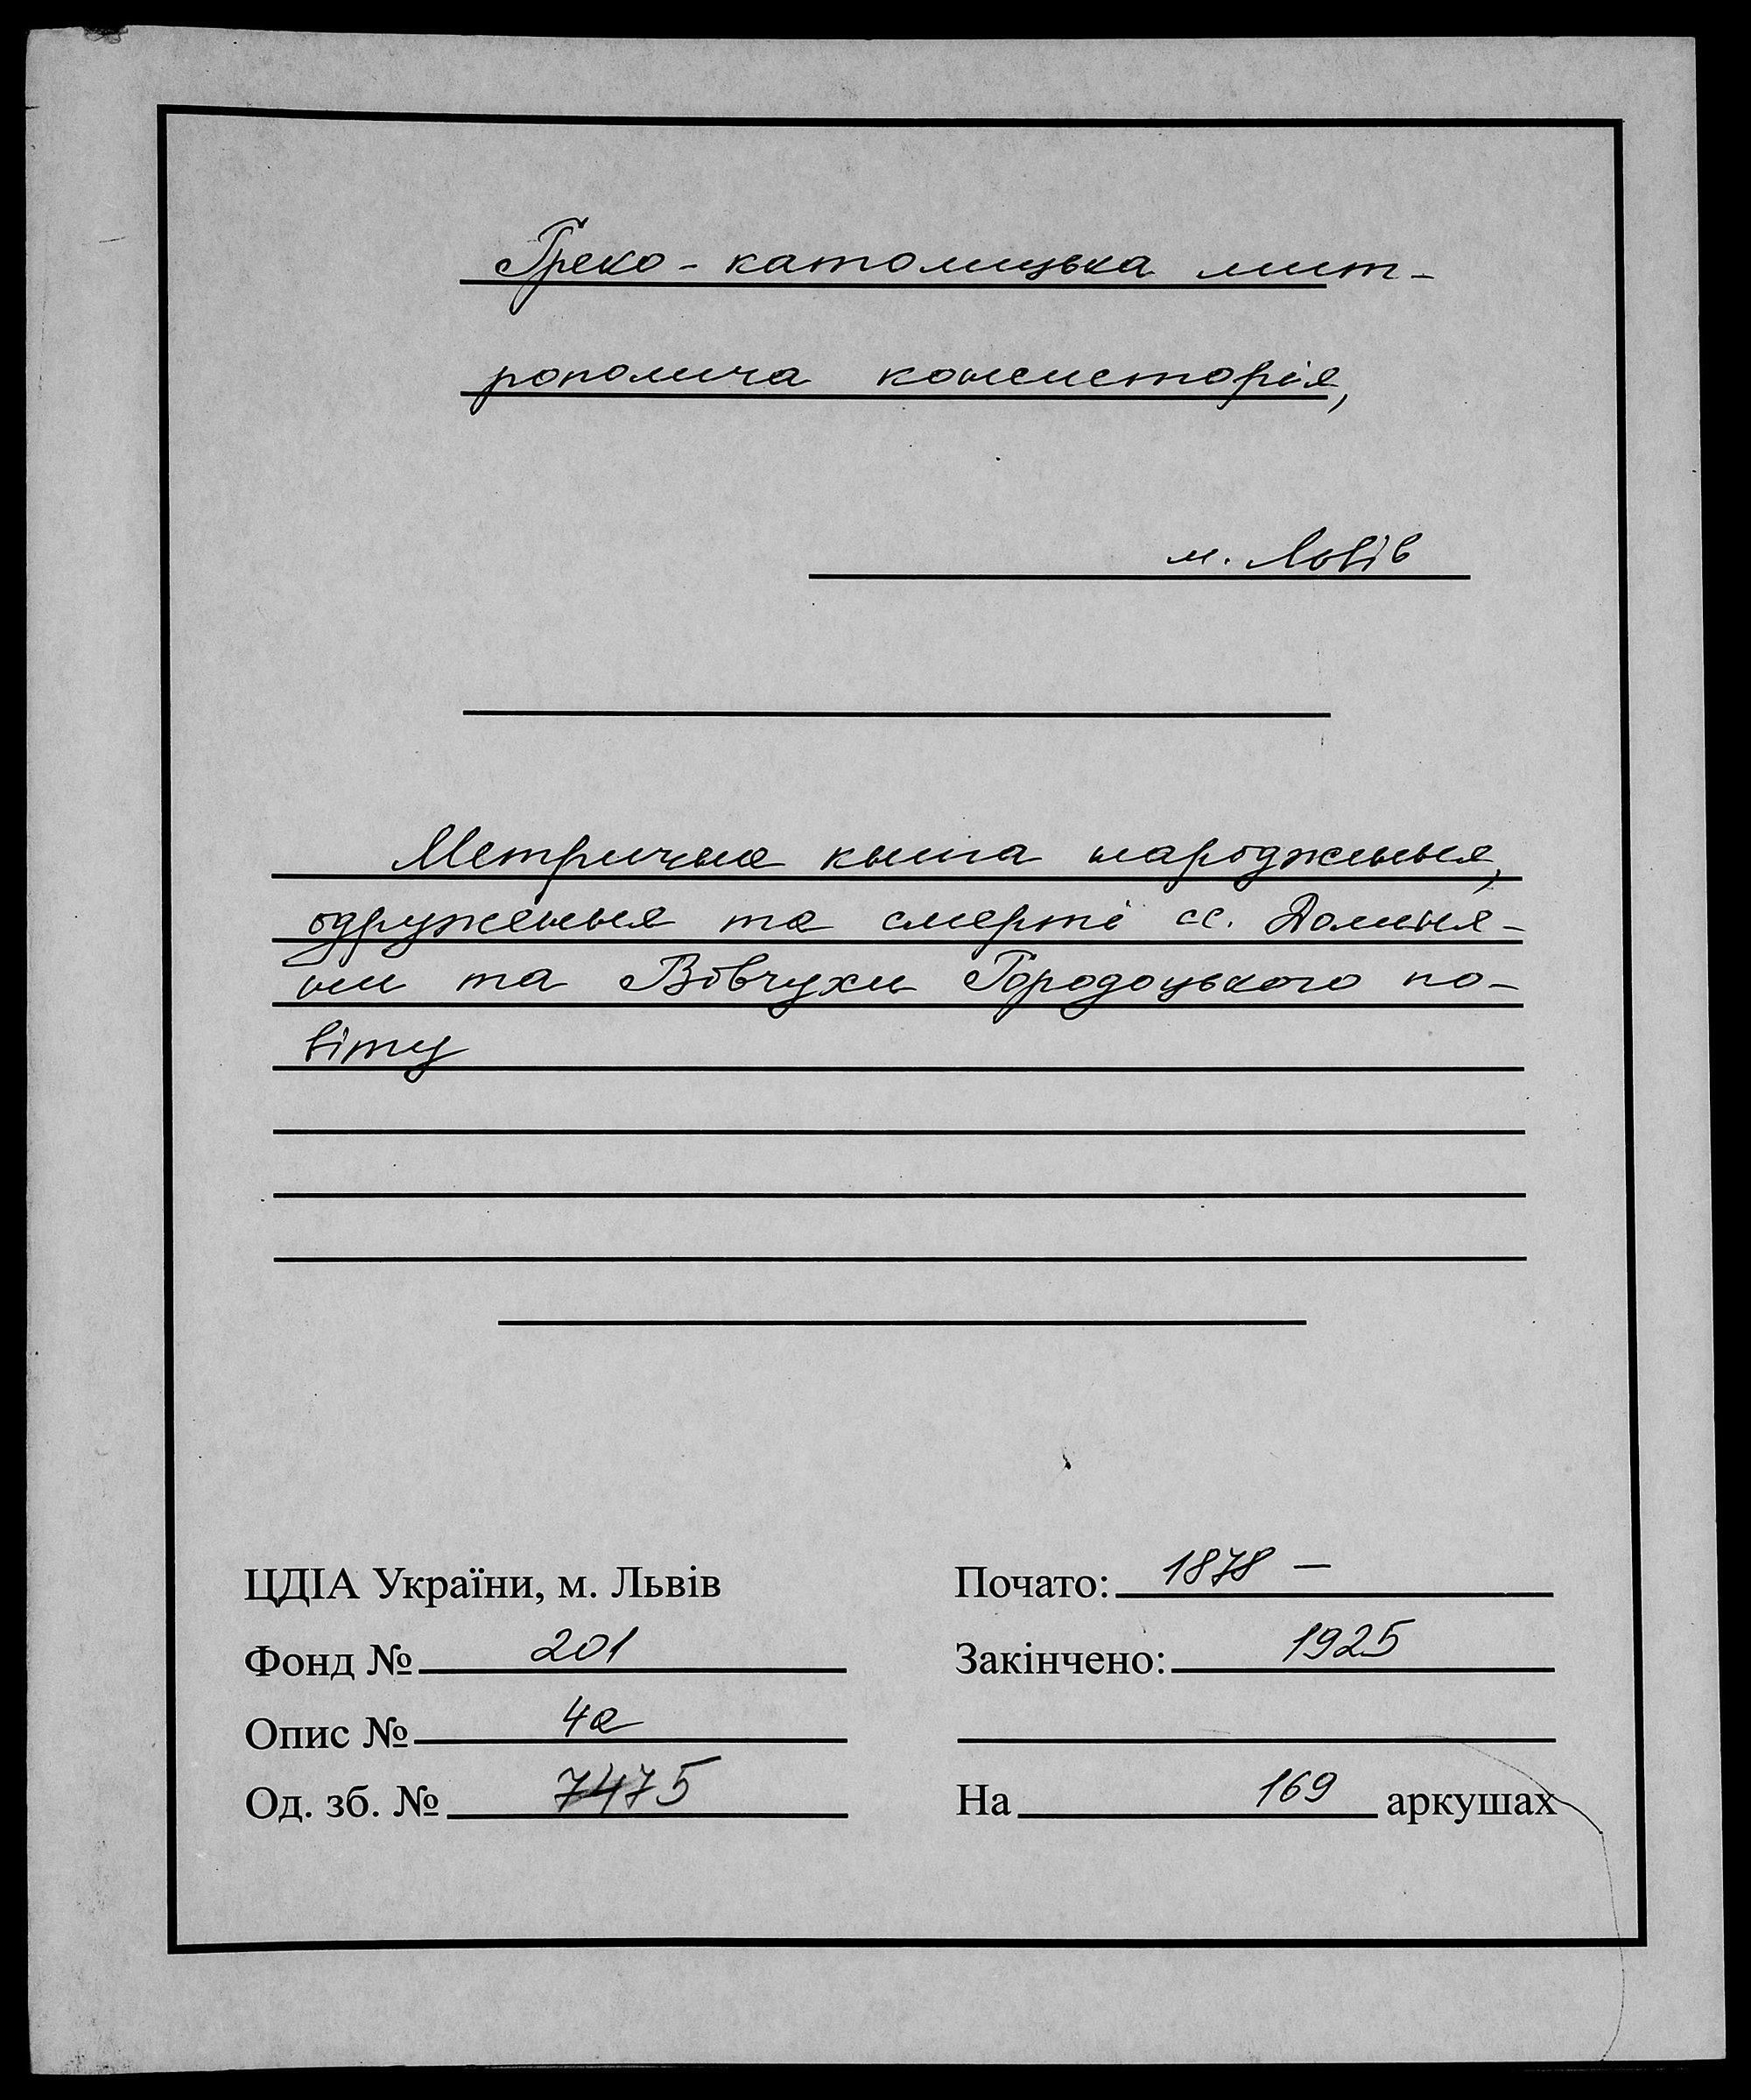 Греко-католицька мит-
рополича консисторія,
м. Львів
Метрична книга народження,
одруження та смерті сс. Долиня-
ни та Вовчухи Городоцького по-
віту
ЦДІА України, м. Львів
Почато: 1878 —
Фонд № 201
Закінчено: 1925
Опис № 4а
Од. зб. № 7475
На 169 аркушах